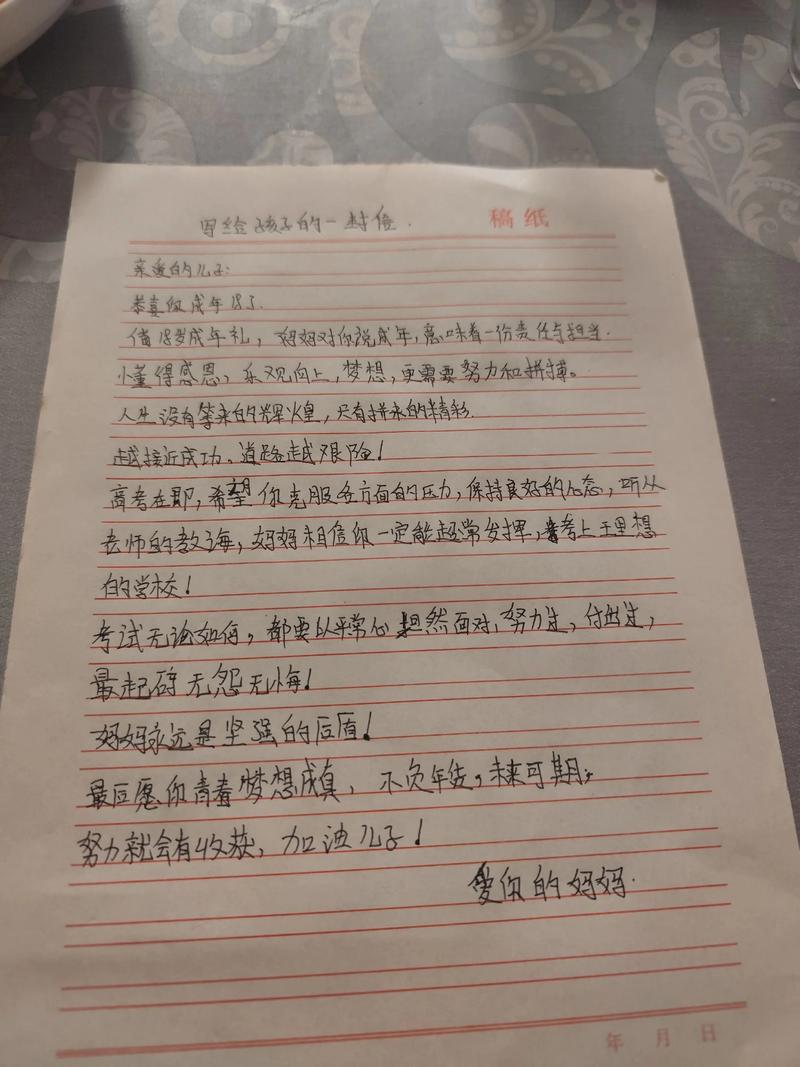 写给孩子的一封信.
稿纸
亲爱的儿子:
恭喜你成年18了.
值18岁成年礼,妈妈对你说成年,意味着一份责任与担当.
懂得感恩,乐观向上,梦想,更需要努力和拼搏。
人生没有等来的辉煌,只有拼来的精彩.
越接近成功,道路越艰险!
高考在即,希望你克服各方面的压力,保持良好的心态,听从
老师的教诲,妈妈相信你一定能超常发挥,考上理想
的学校!
考试无论如何,都要以平常心坦然面对,努力过,付出过,
最起码无怨无悔!
妈妈永远是坚强的后盾!
最后愿你青春梦想成真,不负年华,未来可期,
努力就会有收获,加油儿子!
爱你的妈妈.
年 月 日